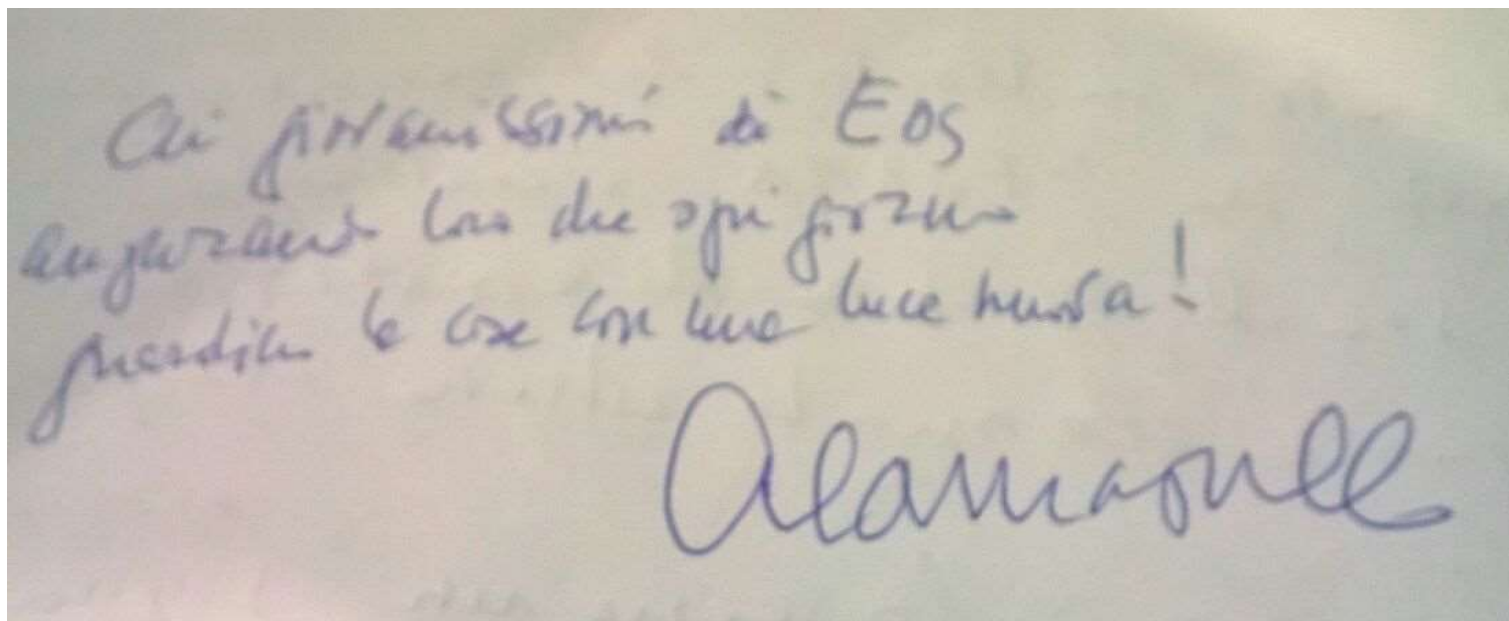 Ai giovanissimi di Eos
augurando loro che ogni giorno
guardino le cose con una luce nuova!